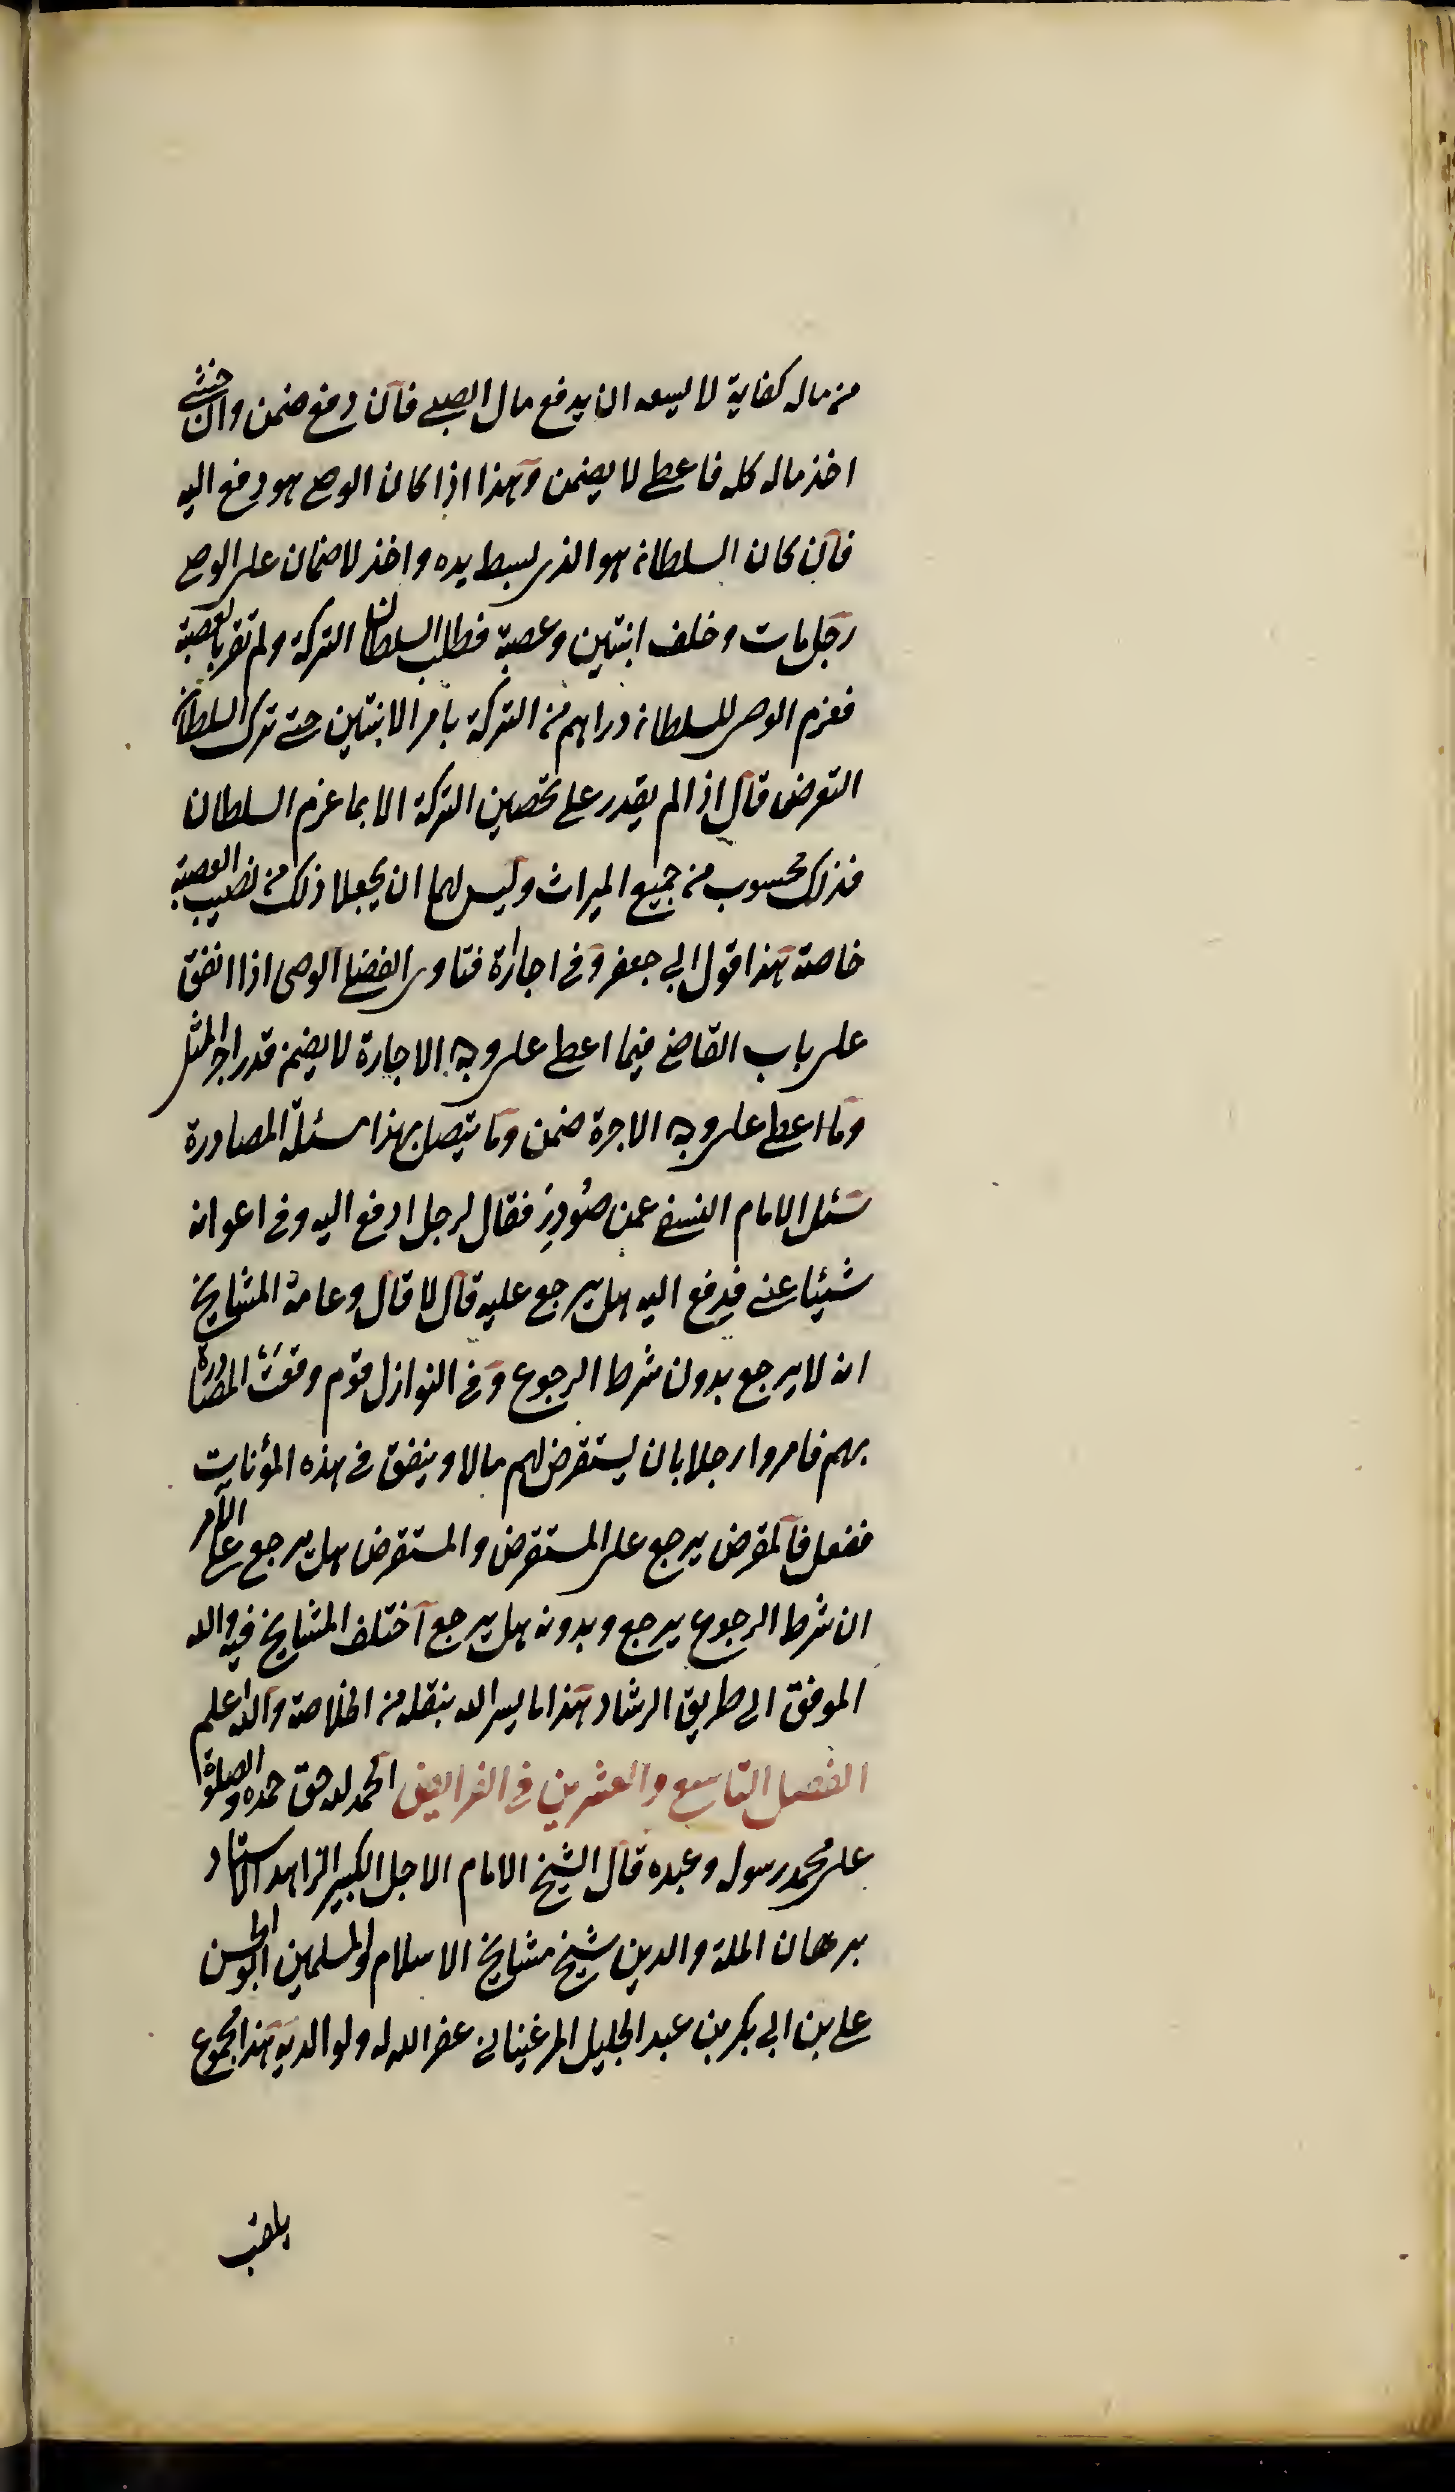 من ماله كفاية لا يسعه ان يدفع مال الصبي فان دفع ضمن وان خشي
اخذ ماله كله فاعطى لا يضمن وهذا اذا كان الوصي هو دفع اليه
فان كان السلطان هو الذي بسط يده واخذ لا ضمان على الوصي
رجل مات وخلف ابنتين وعصبة فطلب السلطان التركة ولم تقر بالعصبة
فغرم الوصي للسلطان دراهم من التركة بامر الابنتين حتى ترك السلطان
التعرض قال اذا لم يقدر على تحصين التركة الا بما غرم السلطان
فذلك محسوب من جميع الميراث وليس لهما ان يجعلا ذلك من نصيب العصبة
خاصة هذا قول ابي جعفر وفي اجارة فتاوى الفضلي الوصي اذا انفق
على باب القاضي فيما اعطى على وجه الاجارة لا يضمن قدر اجر المثل
وما اعطى على وجه الاجرة ضمن وما يتصل بهذا مسئلة المصادرة
سئل الامام النسفي عمن صُودِرَ فقال لرجل ادفع اليه وفي اعوانه
شيئا عني فدفع اليه هل يرجع عليه قال لا قال وعامة المشايخ
انه لا يرجع بدون شرط الرجوع وفي النوازل قوم وقعت المصادرة
بهم فامروا رجلا بان يستقرض لهم مالا وينفق في هذه المؤنات
ففعل فالمقرض يرجع على المستقرض والمستقرض هل يرجع على الآمر
ان شرط الرجوع يرجع وبدونه هل يرجع اختلف المشايخ فيه والله
الموفق الى طريق الرشاد هذا ما يسر الله بنقله من الخلاصة والله اعلم
الفصل التاسع والعشرين في الفرايض الحمد لله حق حمده والصلوة
على محمد رسوله وعبده قال الشيخ الامام الاجل الكبير الزاهد الاستاد
برهان الملة والدين شيخ مشايخ الاسلام والمسلمين ابو الحسن
علي بن ابي بكر بن عبد الجليل المرغيناني غفر الله له ولوالديه هذا مجموع
يلقب